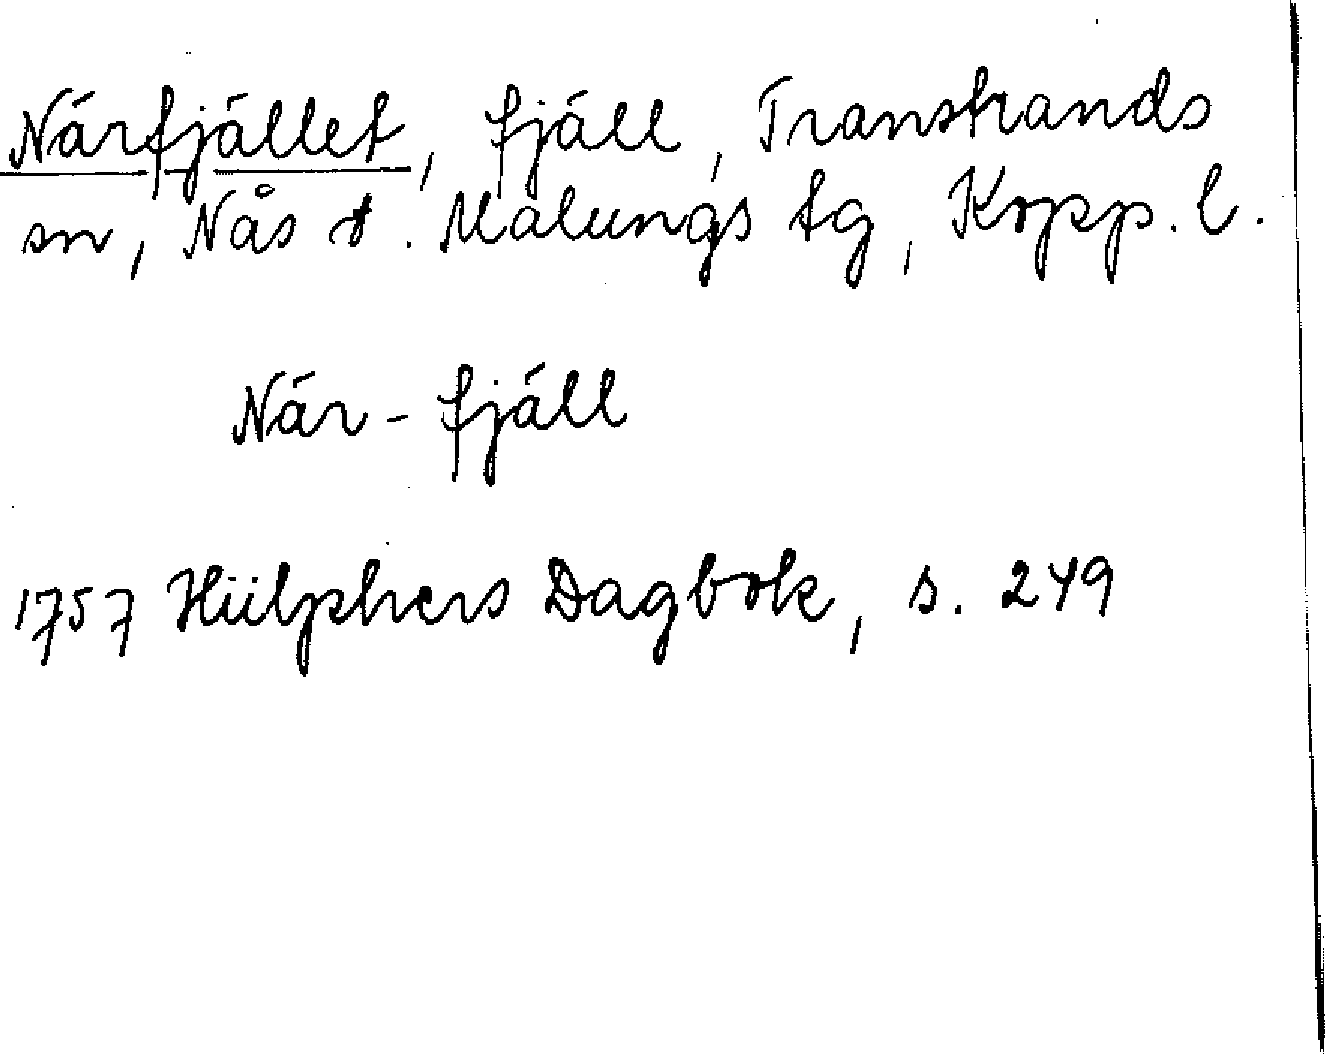 Närfjället, fjäll, Transtrands
sn, Nås o. Malungs tg, Kopp. l.
När - fjäll
1757 Hülphers Dagbok, s. 249